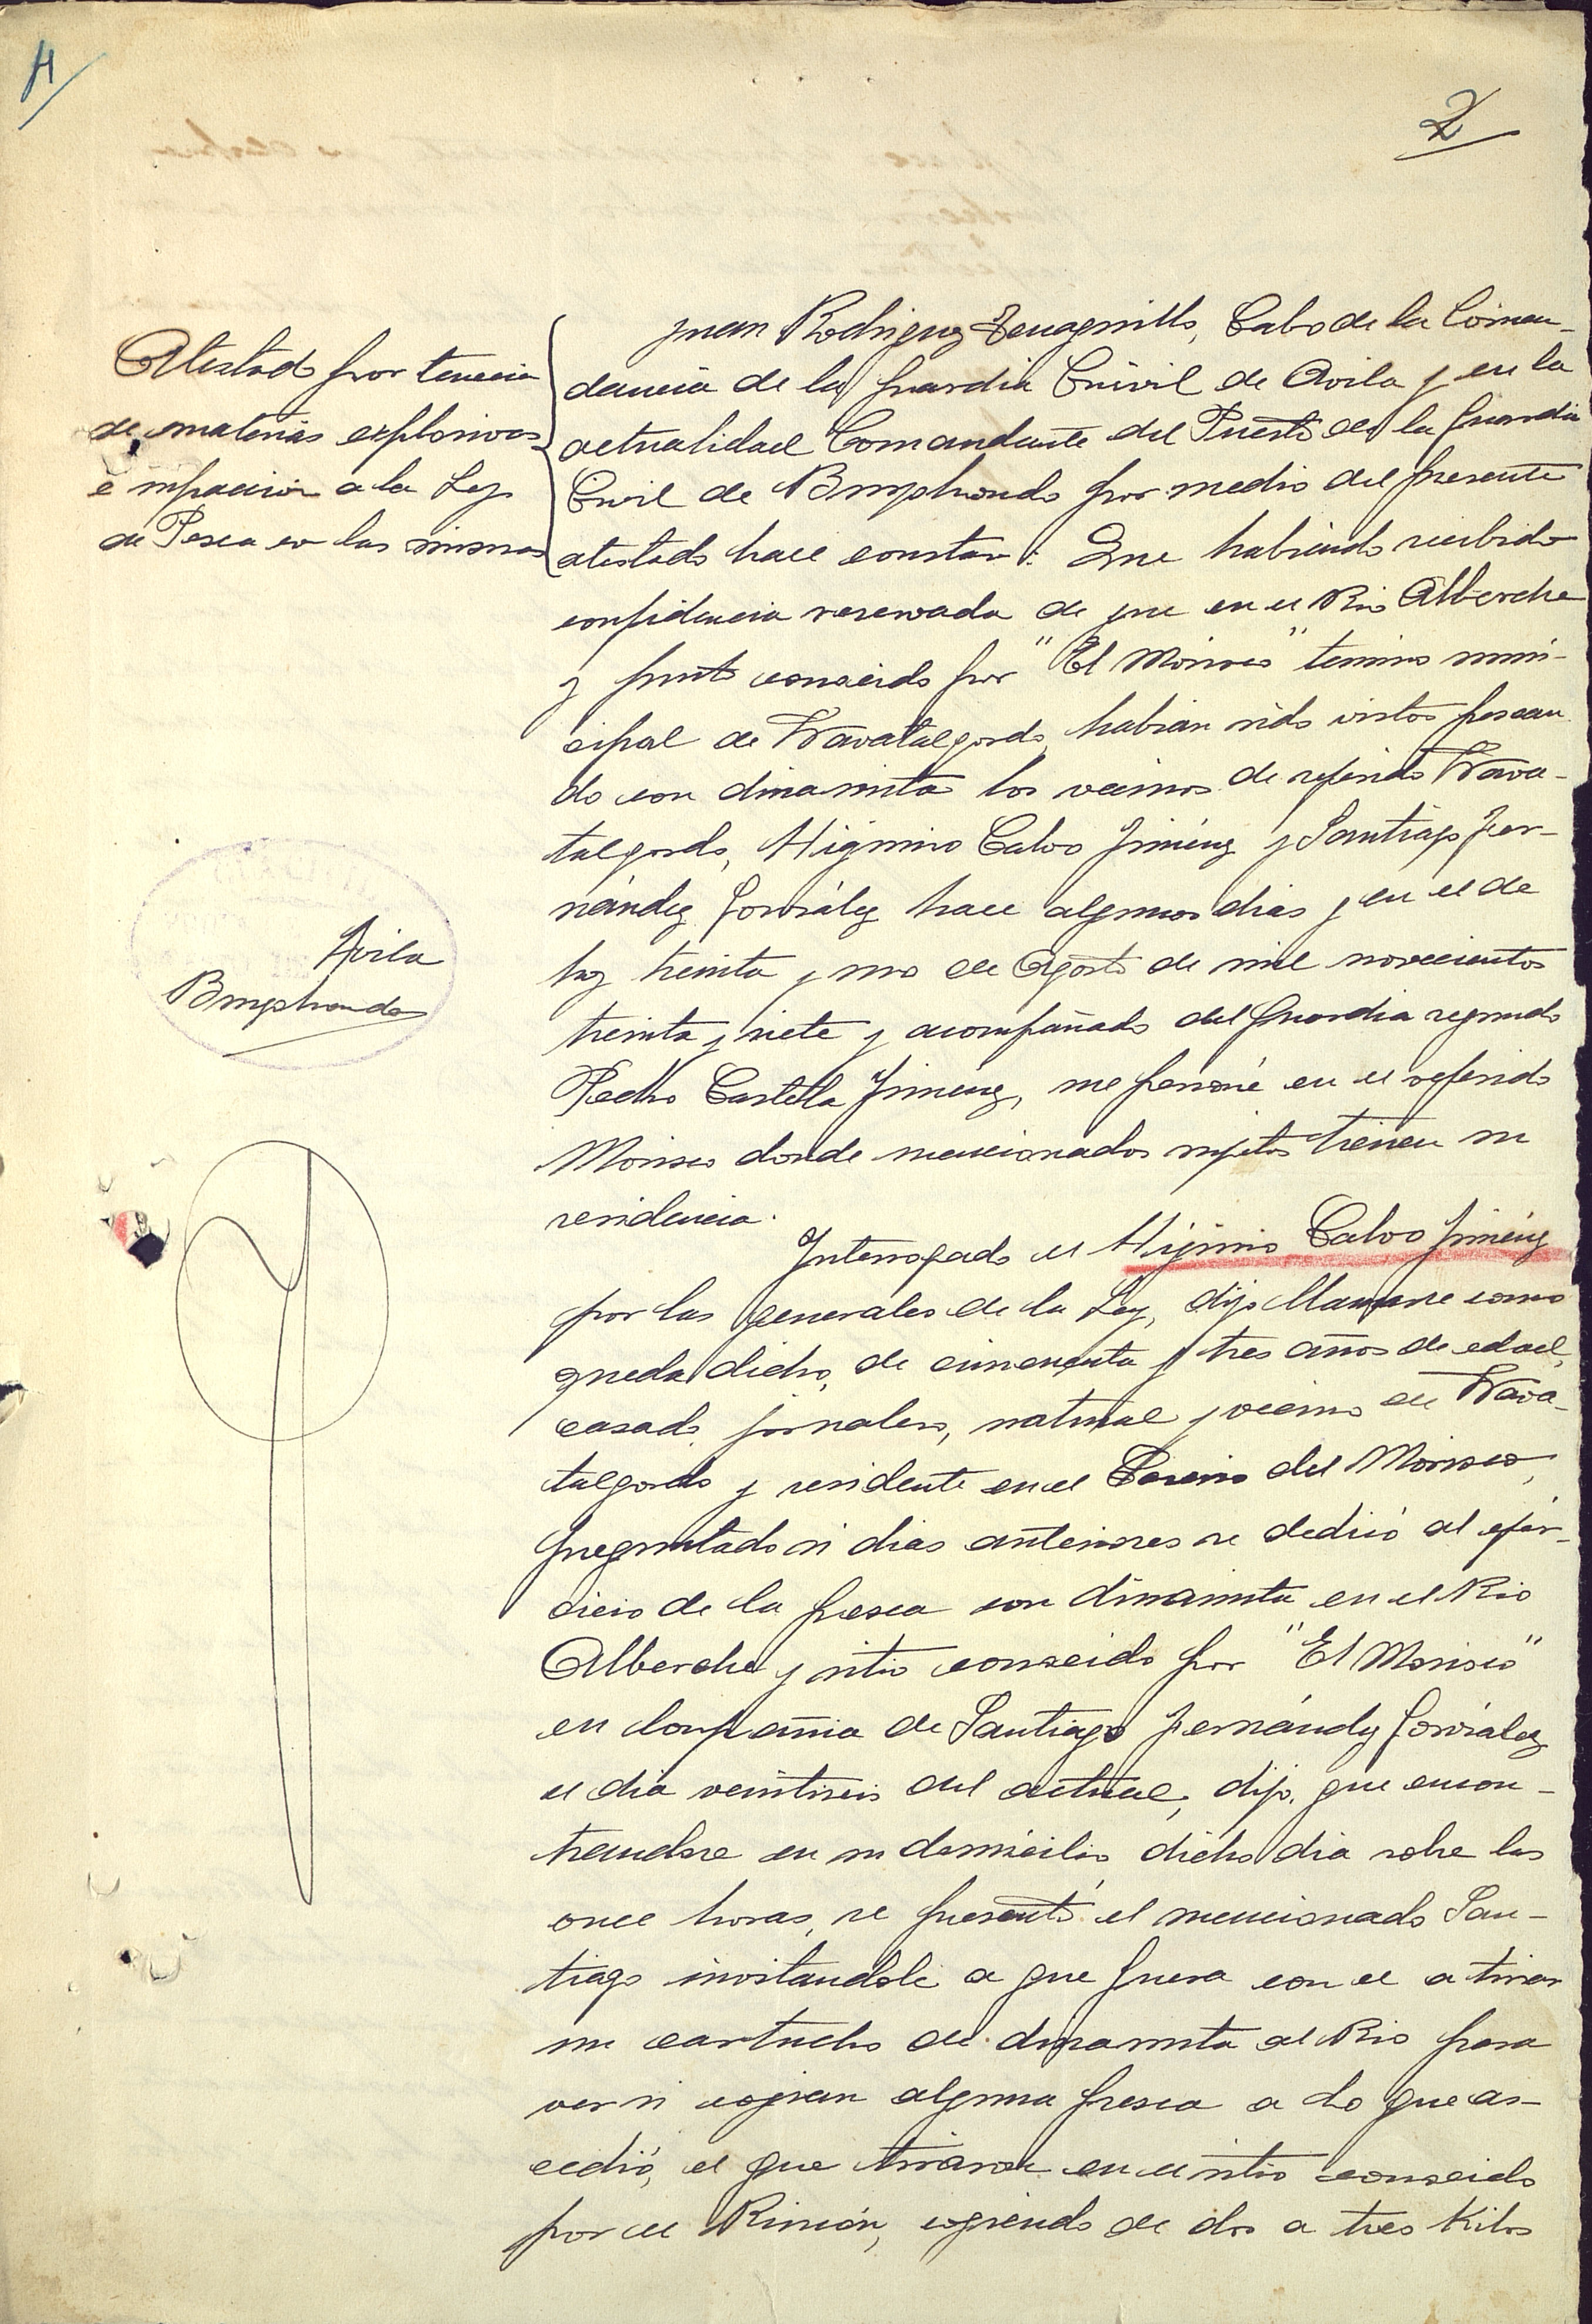 H
2
Atestado por tenencia
de materias explosivas
e infraccion a la Ley
de Pesca con las mismas
Juan Rodriguez, Cabo de la Coman-
dancia de la Guardia Civil de Avila y en la
actualidad Comandante del Puesto de la Guardia
Civil de Burgohondo por medio del presente
atestado hace constar: Que habiendo recibido
confidencia reservada de que en el Rio Alberche
y punto conocido por "El Morisco" termino muni-
cipal de Navatalgordo, habian sido vistos pescan
do con dinamita los vecinos de referido Nava-
talgordo, Higinio Calvo Jiménez y Santiago Fer-
nández González hace algunos dias y en el de
hoy treinta y uno de Agosto de mil novecientos
treinta y siete y acompañado del Guardia segundo
Pedro Jiménez, me personé en el referido
Morisco donde mencionados sujetos tienen su
residencia.
Interrogado el Higinio Calvo Jiménez
por las generales de la Ley, dijo llamarse como
queda dicho, de cincuenta y tres años de edad,
casado, jornalero, natural y vecino de Nava-
talgordo y residente en el del Morisco,
preguntado si dias anteriores se dedicó al ejer-
cicio de la pesca con dinamita en el Rio
Alberche y sitio conocido por "El Morisco"
en compañia de Santiago Fernández González
el dia veintiseis del actual, dijo: que encon-
trandose en su domicilio dicho dia sobre las
once horas, se presentó el mencionado San-
tiago invitandole a que fuera con el a tirar
un cartucho de dinamita al Rio para
ver si cojian alguna pesca a lo que ac-
cedió, el que tiraron en el sitio conocido
por el Rincón, cogiendo de dos a tres Kilos
Avila
Burgohondo